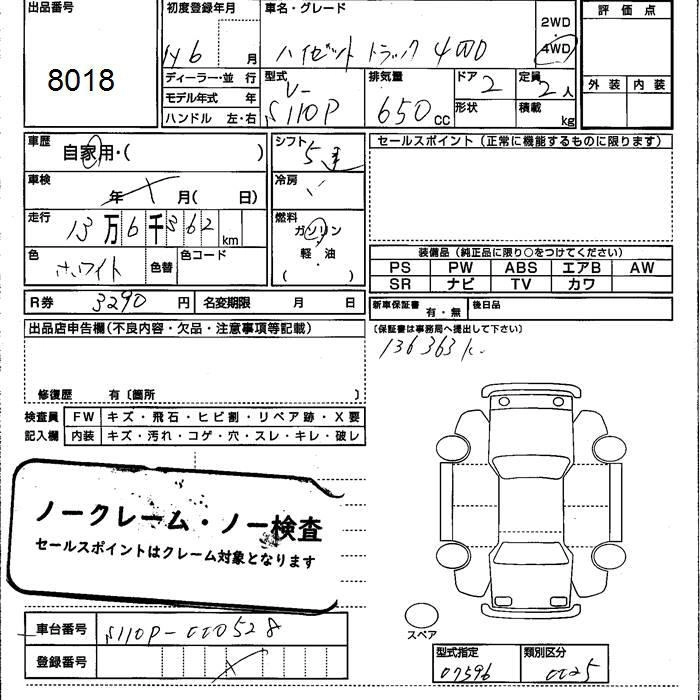 出品番号
8018
初度登録年月
H6 月
ディーラー・並 行
モデル年式 年
ハンドル 左・右
車名・グレード
ハイゼット トラック 4WD
2WD
4WD
型式
V-
S110P
排気量
650 cc
ドア 2
形状
定員 2 人
積載 kg
評価点
外装 内装
車歴
自家用・( )
車検
年 月( 日)
走行
13万6千362 km
色
ホワイト
色替
色コード
シフト
5速
冷房
燃料
ガソリン
軽・油
( )
R券 3290 円 名変期限 月 日
セールスポイント(正常に機能するものに限ります)
装備品(純正品に限り○をつけてください)
PS PW ABS エアB AW
SR ナビ TV カワ
新車保証書 有・無 後日品
〔保証書は事務局へ提出して下さい〕
136363k.
出品店申告欄(不良内容・欠品・注意事項等記載)
修復歴 有〔箇所 〕
検査員 FW キズ・飛石・ヒビ割・リペア跡・X要
記入欄 内装 キズ・汚れ・コゲ・穴・スレ・キレ・破レ
ノークレーム・ノー検査
セールスポイントはクレーム対象となります
車台番号 S110P-000528
登録番号
スペア
型式指定 類別区分
07596 0025